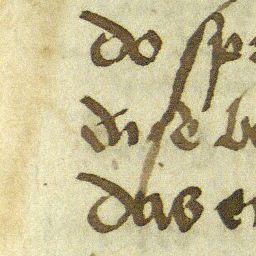 do sp
dise be
das er